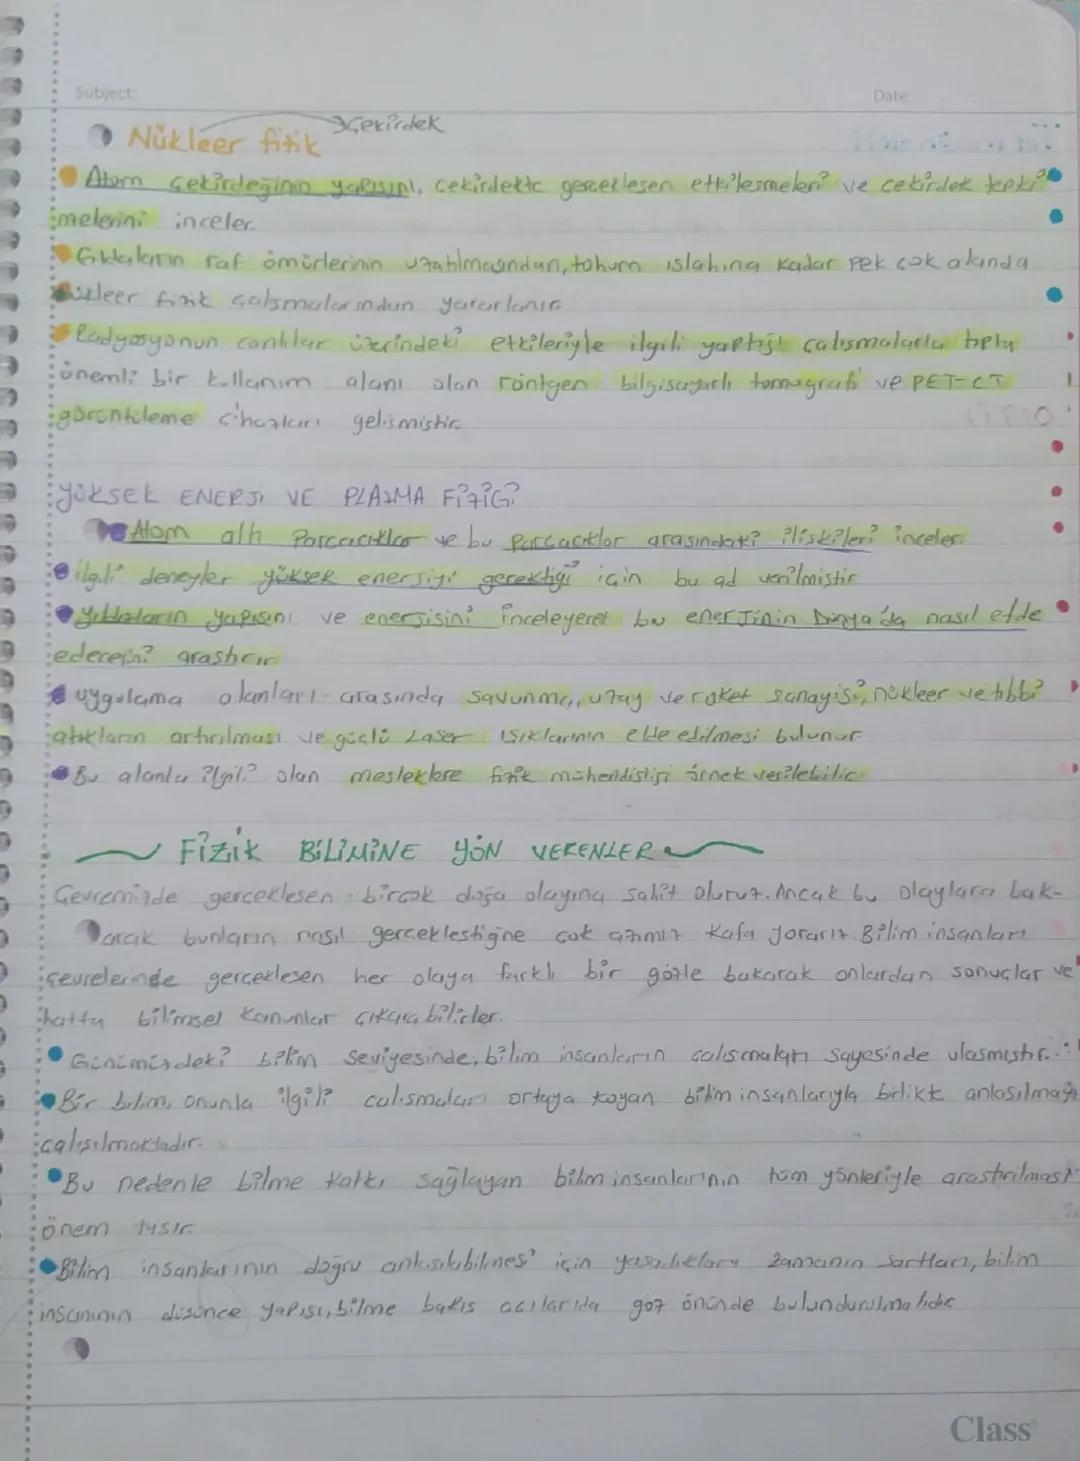 Subject:
Date:
Nükleer fizik → Çekirdek
Atom çekirdeğinin yapısını, çekirdekte gerçekleşen etkileşmeleri ve çekirdek tepki
melerini inceler.
Gıdaların raf ömürlerinin uzatılmasından, tohum ıslahına kadar pek çok alanda
nükleer fizik çalışmalarından yararlanır.
Radyasyonun canlılar üzerindeki etkileriyle ilgili yaptığı çalışmalarla tıpta
önemli bir kullanım alanı olan röntgen bilgisayarlı tomografi ve PET-CT
görüntüleme cihazları gelişmiştir.
YÜKSEK ENERJİ VE PLAZMA FİZİĞİ
Atom altı Parçacıklar ve bu parçacıklar arasındaki ilişkileri inceler.
ilgili deneyler yüksek enerjiyi gerektiği için bu ad verilmiştir
Yıldızların yapısını ve enerjisini inceleyerek bu enerjinin Dünya'da nasıl elde
edeceğini araştırır
uygulama alanları arasında savunma, uzay ve roket sanayisi, nükleer ve tıbbi
atıkların artırılması ve güçlü Lazer ışıklarının elde edilmesi bulunur
Bu alanla ilgili olan mesleklere fizik mühendisliği örnek verilebilir
FİZİK BİLİMİNE YÖN VERENLER
Çevremizde gerçekleşen birçok doğa olayına şahit oluruz. Ancak bu olaylara bak-
arak bunların nasıl gerçekleştiğine çok azımız kafa yorarız. Bilim insanları
çevrelerinde gerçekleşen her olaya farklı bir gözle bakarak onlardan sonuçlar ve
hatta bilimsel kanunlar çıkarabilirler.
Günümüzdeki bilim seviyesinde, bilim insanlarının çalışmaları sayesinde ulaşmıştır.
Bir bilim, onunla ilgili çalışmaları ortaya koyan bilim insanlarıyla birlikte anlaşılmaya
çalışılmaktadır.
Bu nedenle bilme katkı sağlayan bilim insanlarının tüm yönleriyle araştırılması
önem taşır.
Bilim insanlarının doğru anlaşılabilmesi için yaşadıkları zamanın şartları, bilim
insanının düşünce yapısı, bilme bakış açıları da göz önünde bulundurulmalıdır
Class